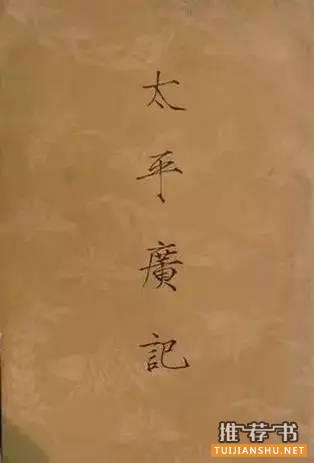 太平廣記
推荐书
TUIJIANSHU.NET